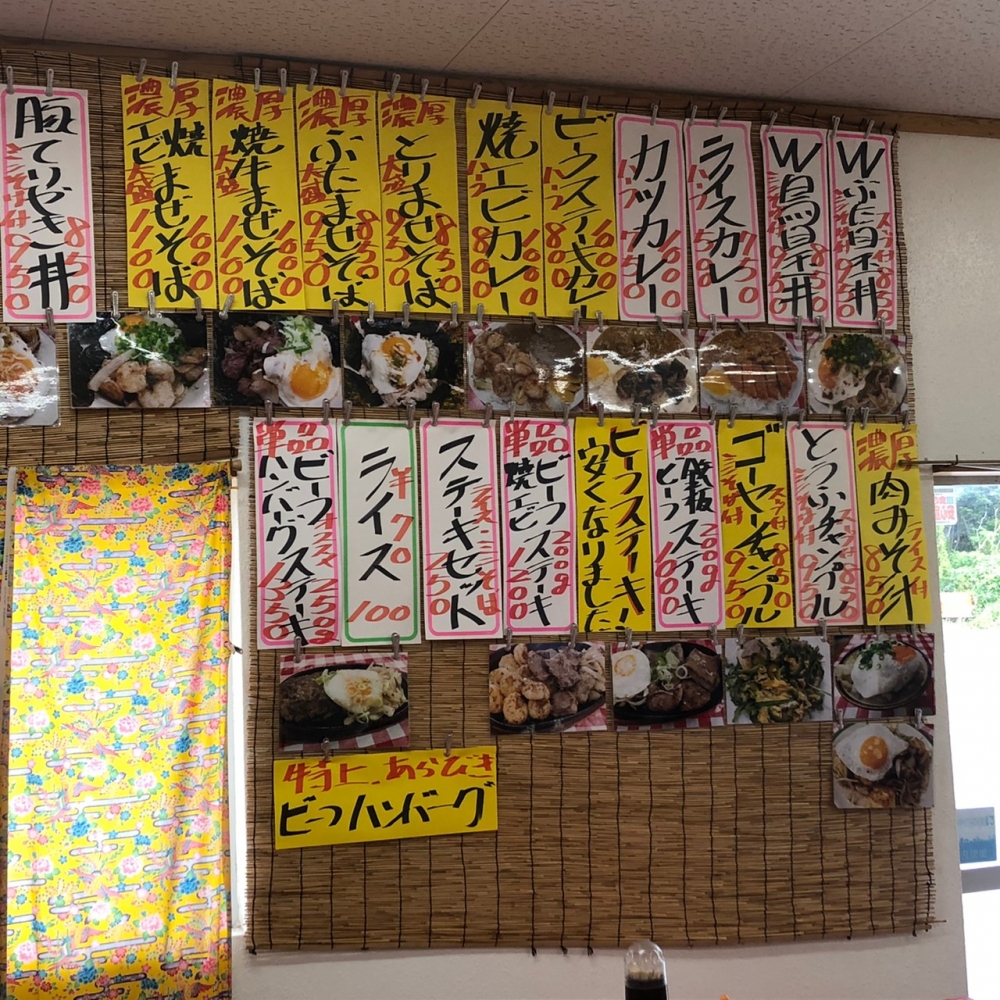 Wぶた皿丼
スープ付
850
950
W鳥皿丼
850
950
ライスカレー
750
ハーフ
カツカレー
950
ハーフ
750
ビーフステーキカレー
1000
ハーフ
800
焼エビカレー
1000
ハーフ
800
濃厚
とりまぜそば
850
大盛
950
濃厚
ぶたまぜそば
850
大盛
950
濃厚
焼牛まぜそば
1000
大盛
1100
濃厚
焼エビまぜそば
1000
大盛
1100
てりやき丼
850
ミニそば付
950
濃厚
肉みそ汁
ライス付
850
とうふチャンプル
スープ付
850
ミニそば付
950
ゴーヤーチャンプル
スープ付
850
ミニそば付
950
単品
鉄板ビーフステーキ
200g
1600
ビーフステーキ!
安くなりました
単品
ビーフステーキ
200g
焼エビ
1200
ステーキセット
ライス
ミニそば
250
ライス
半70
100
単品
ビーフ
ハンバーグステーキ
オススメ
250g
1350
特上.あらびき
ビーフハンバーグ